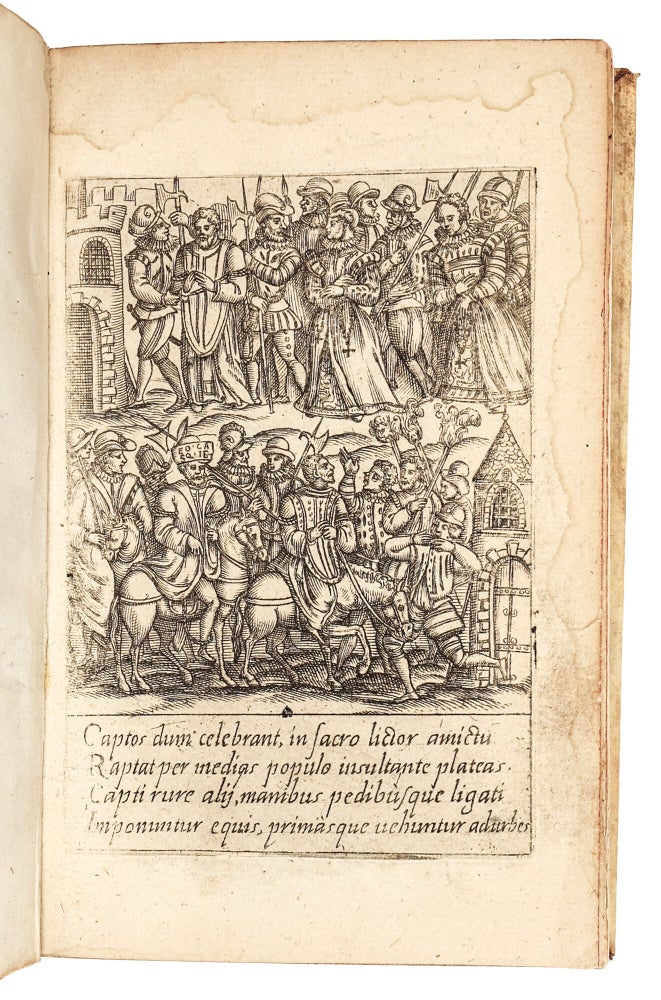 ED·CA
SQ·IE
Captos dum celebrant, in sacro lictor amictu
Raptat per medias populo insultante plateas.
Capti rure alij, manibus pedibusque ligati
Imponuntur equis, primasque uehuntur ad urbes